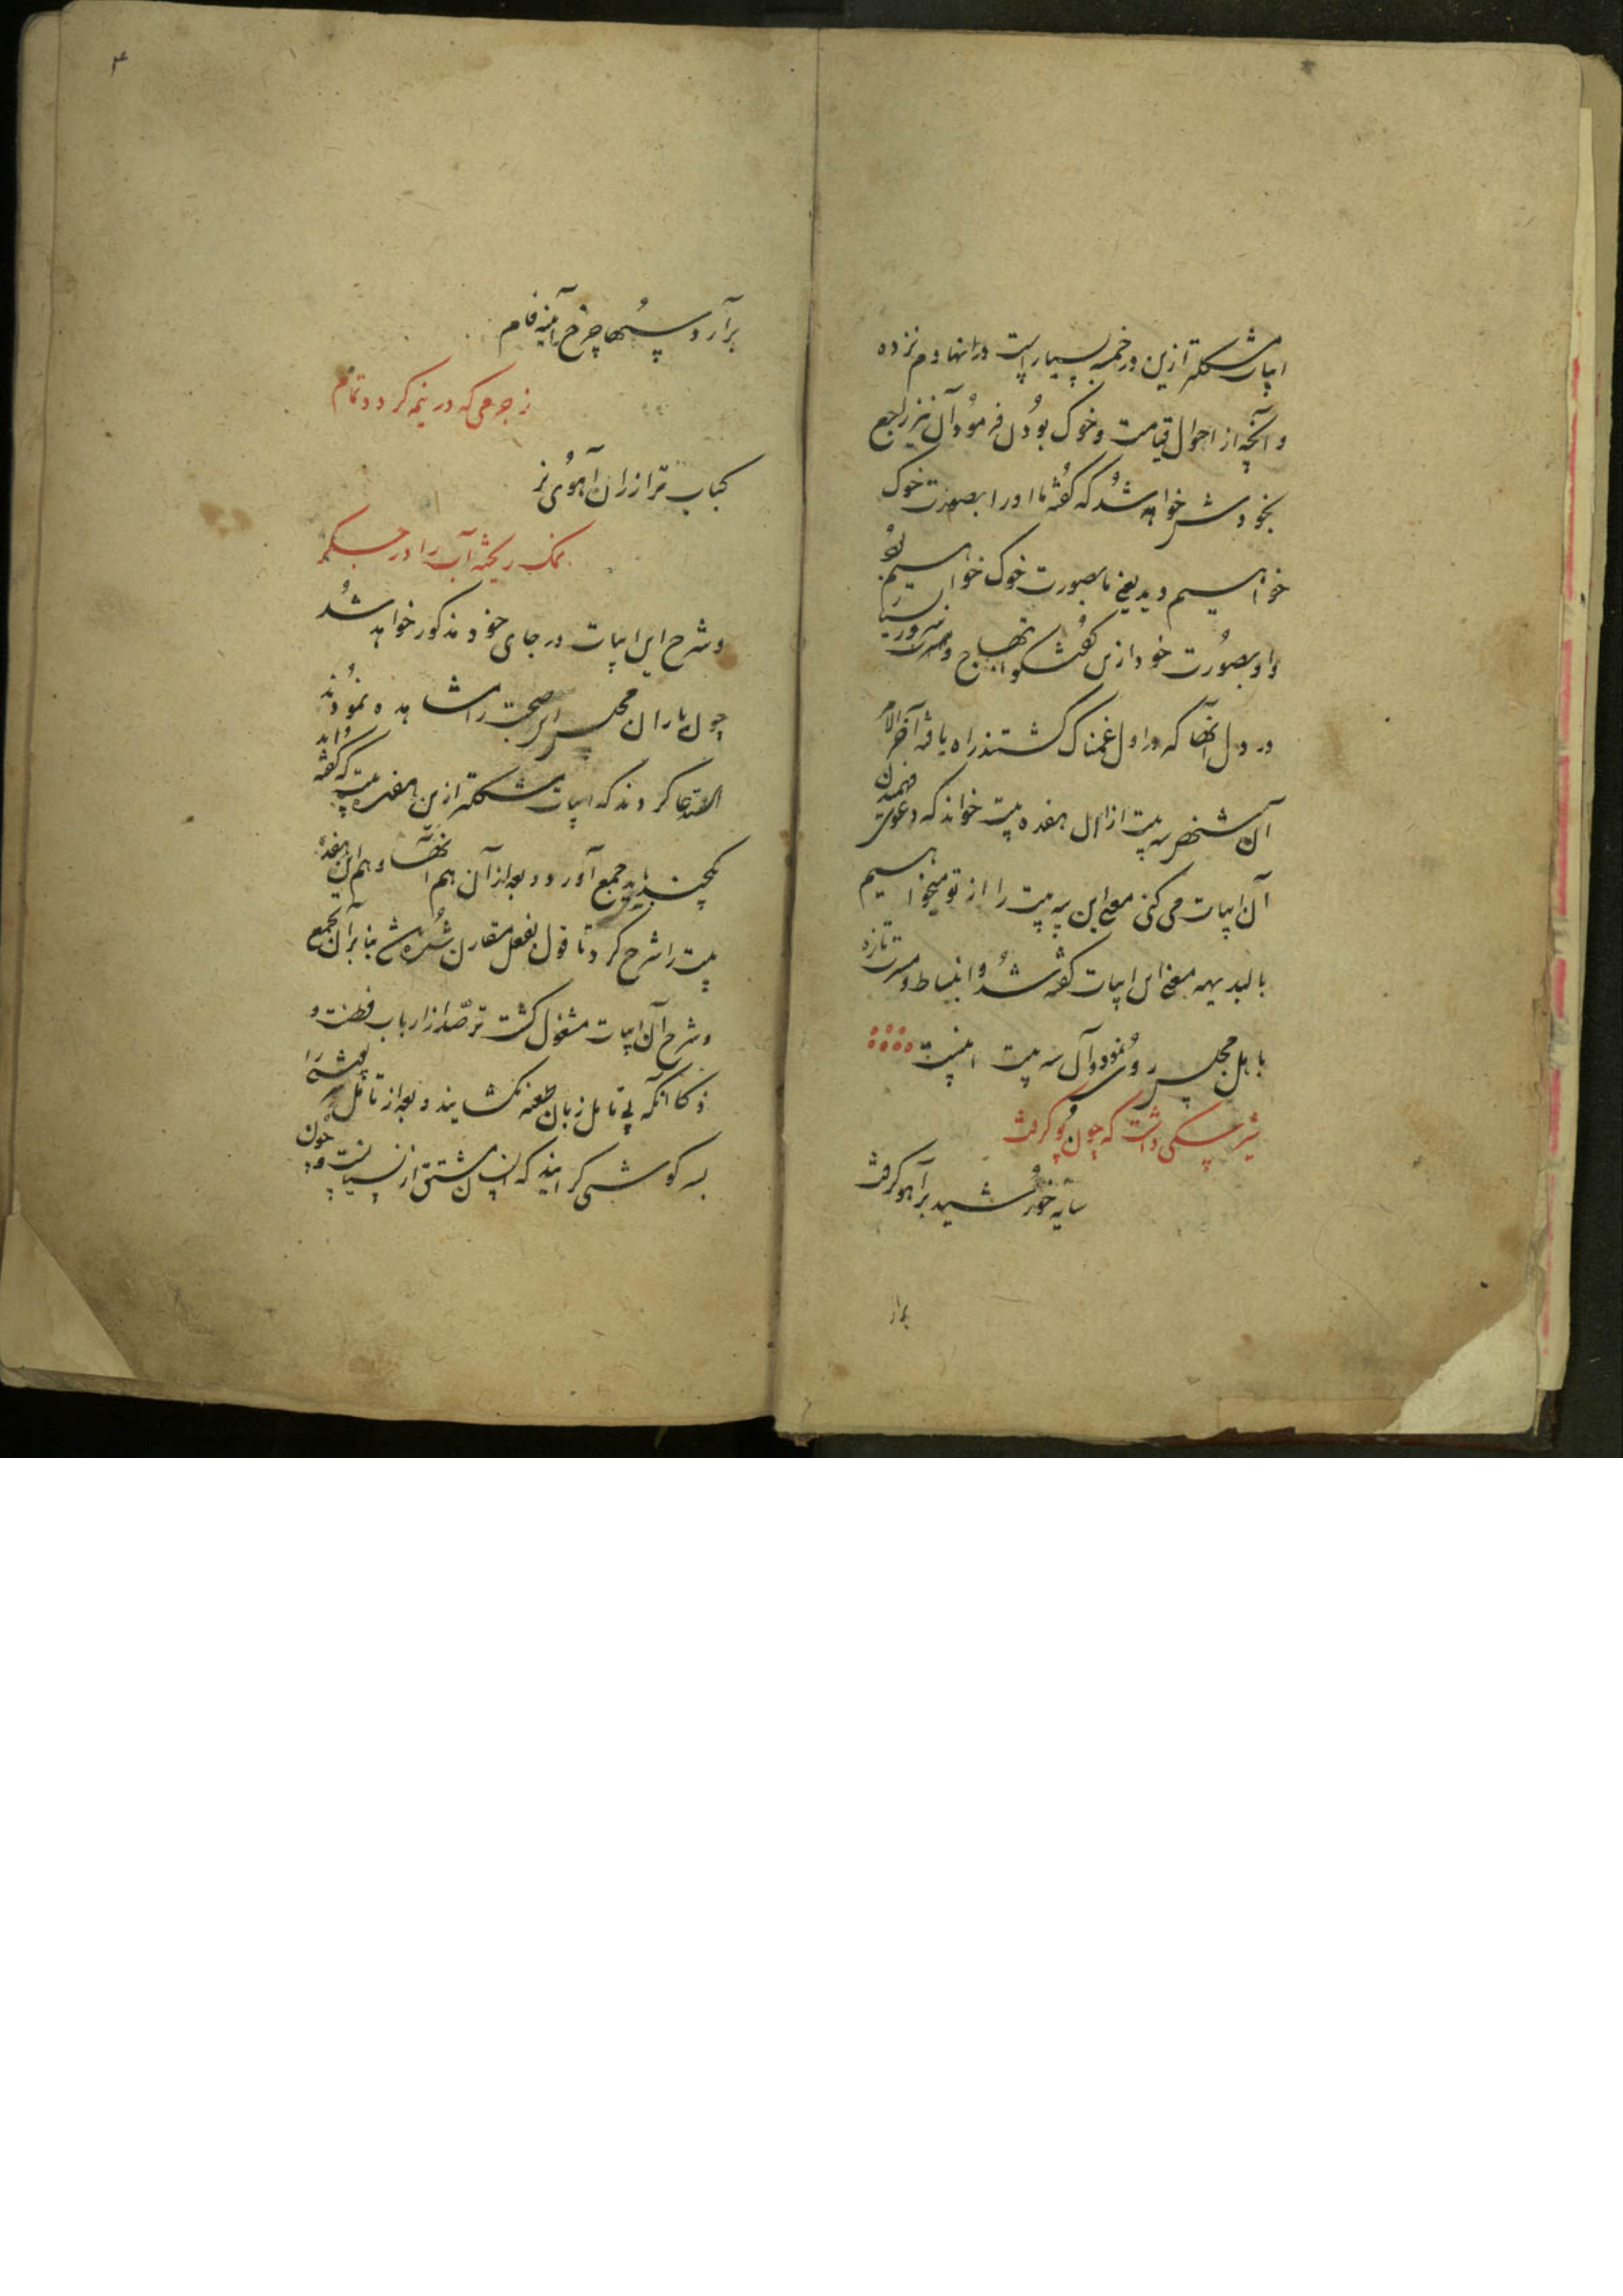 ابیات مشکلتر ازین در خمسه بسیار است در انها دم نزده
و آنچه از احوال قیامت و خوک بودن فرمود آن نیز راجع
بخودش خواهد شد که گفته ما او را بصورت خوک
خواهیم دید یعنی ما بصورت خوک خواهیم بود
و او بصورت خود ازین گفتگو ابتهاج و مسرت
در دل آنها که در اول غمناک گشتند راه یافته آخر الامر
آن شخص سه بیت از ان هفده بیت خواند که دعوی فهمیدن
آن ابیات می کنی معنی این سه بیت را از تو میخواهیم
بالبدیهه معنی این ابیات گفته شد و انبساط و مسرت تازه
باهل مجلس رو نمود و آن سه بیت اینست
شیر سگی داشت که چون پو گرفت
سایه خورشید بر آهو گرفت
برآر
برآرد ستها چرخ آینه فام
ز جرمی که در نیمه کردد تمام
کباب تر از ران آهوی نر
نمک ریخته آب را در جگر
و شرح این ابیات در جای خود مذکور خواهد شد
چون یاران مجلس این صحبت را مشاهده نمودند
التماس کردند که ابیات مشکلتر ازین هفده بیت که گفته اند
یکچند باید جمع آورد و بعد از آن هم آنها و هم این هفده
بیت را شرح کرد تا قول بفعل مقارن شده باشد بنا بر آن بجمع
و شرح آن ابیات مشغول گشت ترصد از ارباب فطنت و
ذکا آنکه بی تامل زبان طعنه نگشایند و بعد از تامل
به کوشش گرایند که انسان مشتق از نسیانست و چون